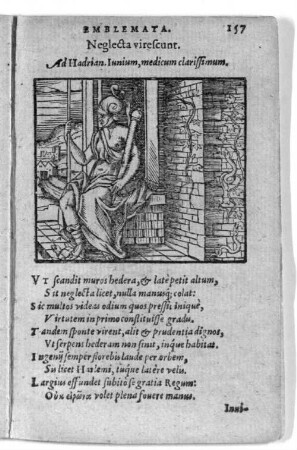 EMBLEMATA. 157
Neglecta virescunt.
Ad Hadrian. Iunium, medicum clarissimum.
VT scandit muros hedera, & latè petit altum,
Sit neglecta licet, nulla manusq; colat:
Sic multos videas odium quos pressit iniquè,
Virtutem in primo constituisse gradu.
Tandem sponte virent, alit & prudentia dignos,
Vt serpens hederam non sinit, inque habitat.
Ingenij semper florebis laude per orbem,
Sis licet Horni, tuque latêre velis.
Largius effundet subitò se gratia Regum:
volet plena fovere manus.
Inui-